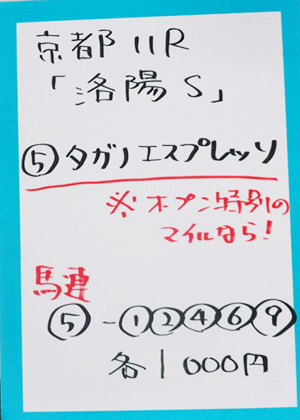 京都11R
「洛陽S」
⑤タガノエスプレッソ
※オープン特別の
マイルなら!
馬連
⑤-①②④⑥⑨
各1000円